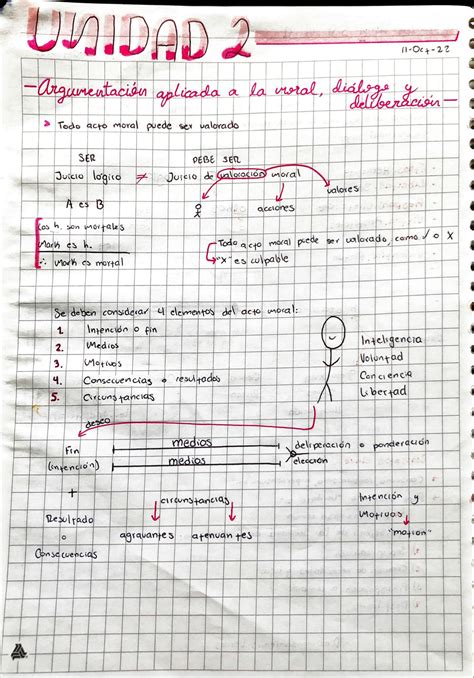 UNIDAD 2
11-Oct-22
-Argumentación aplicada a la moral, diálogo y
deliberación-
> Todo acto moral puede ser valorado
SER
DEBE SER
Juicio lógico ≠ Juicio de valoración moral
valores
A es B
acciones
Los h. son mortales
Mark es h.
∴ Mark es mortal
Todo acto moral puede ser valorado, como ✓ o X
"X" es culpable
Se deben considerar 4 elementos del acto moral:
1. Intención o fin
2. Medios
3. Motivos
4. Consecuencias o resultados
5. Circunstancias
Inteligencia
Voluntad
Conciencia
Libertad
deseo
Fin
(intención)
medios
medios
deliberación o ponderación
elección
+
Resultado
o
Consecuencias
circunstancias
agravantes atenuantes
Intención y
Motivos
"motion"